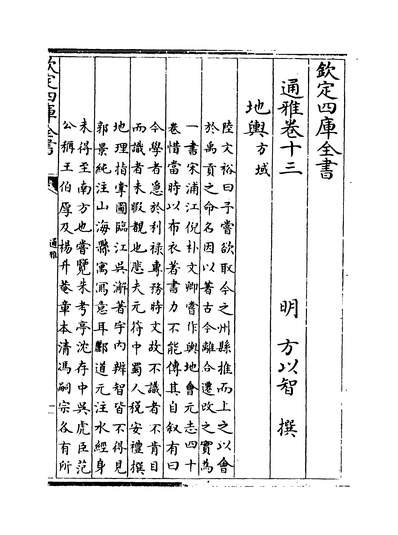 欽定四庫全書
通雅卷十三
明 方以智 撰
地輿方域
陸文裕曰予嘗欲取今之州縣推而上之以會
於禹貢之命名因以著古今離合遷改之實為
一書宋浦江倪朴文卿嘗作輿地會元志四十
卷惜當時以布衣著書力不能傳其自叙有曰
今學者急於利祿專務時文故不識者不肯目
而識者未暇覩也應夫元符中蜀人稅安禮撰
地理指掌圖臨江吳澥著宇内辨智皆不得見
郭景純注山海縣寓寫意耳酈道元注水經身
未得至南方也嘗覽朱考亭沈存中吳虎臣范
公稱王伯厚及楊升菴章本清馮嗣宗各有所
欽定四庫全書
通雅
一